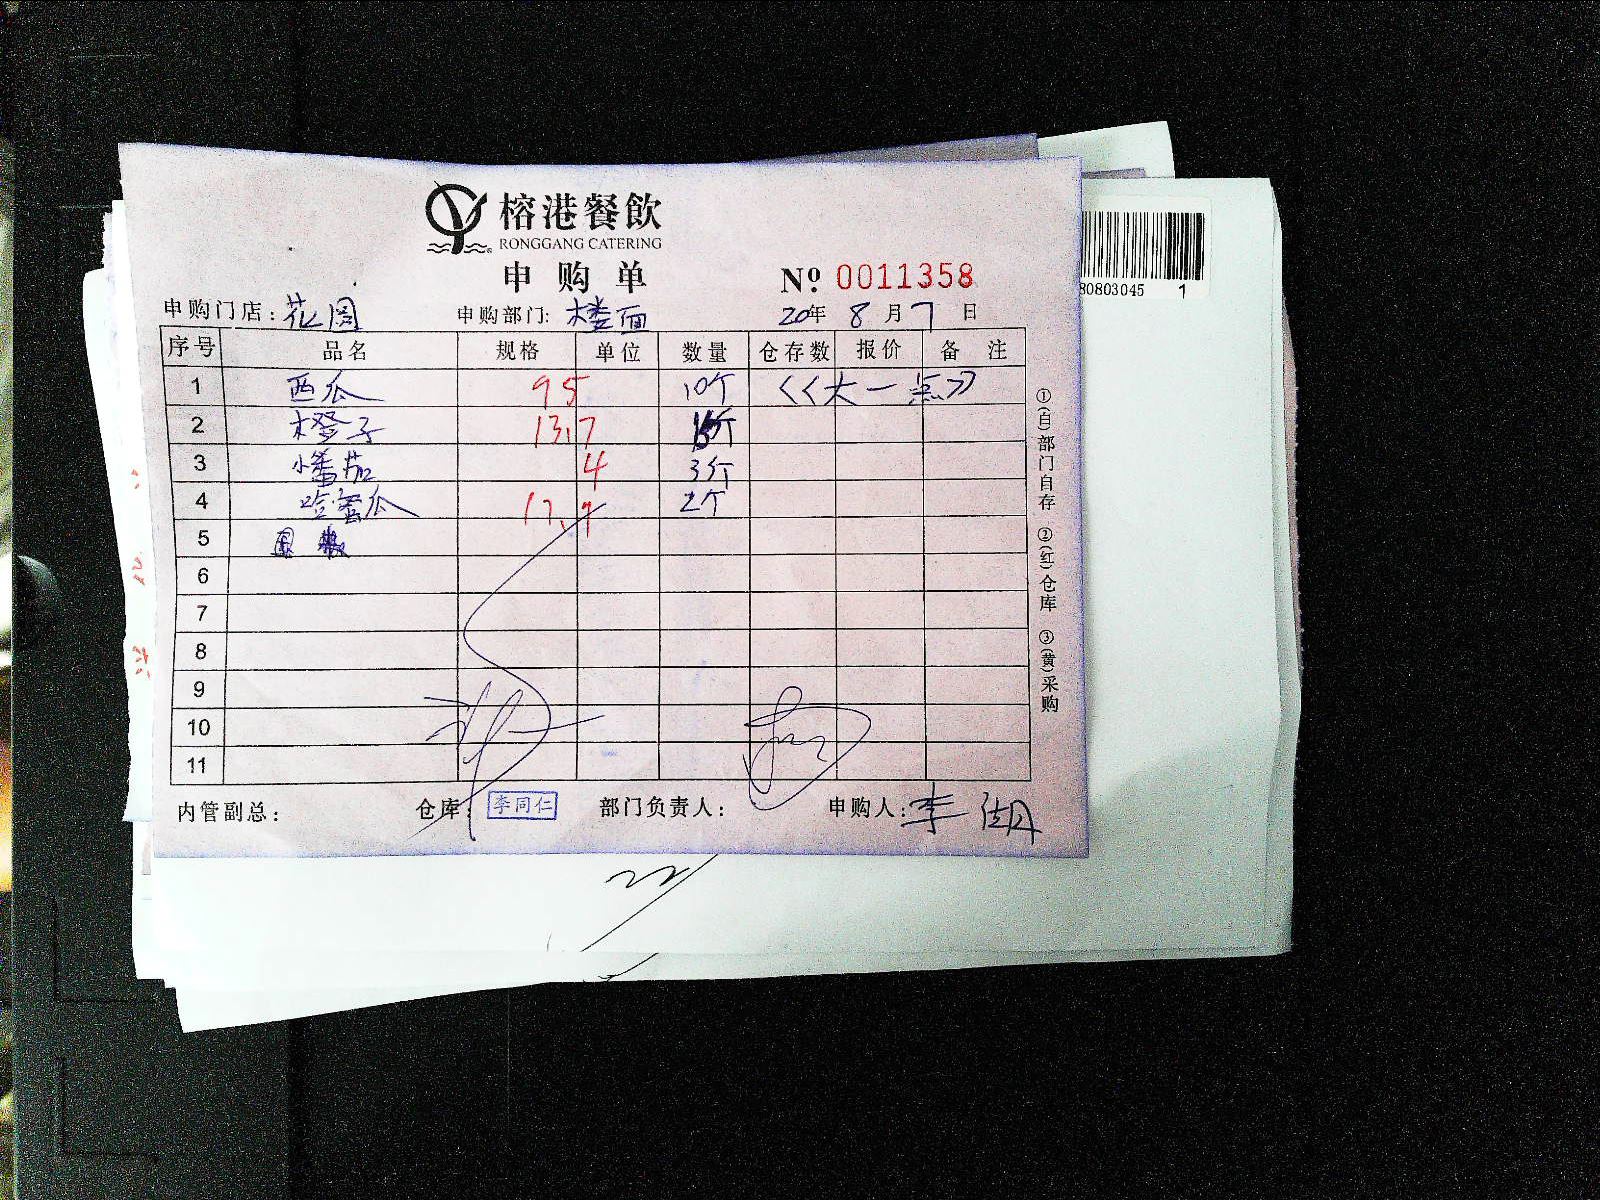 榕港餐飲
RONGGANG CATERING
申购单
Nº 0011358
80803045 1
申购门店：花园 申购部门：楼面 20年 8月 7日
序号 品名 规格 单位 数量 仓存数 报价 备注
1 西瓜 95 10个 《大一点》
2 橙子 13.7 个
3 小番茄 4 3斤
4 哈蜜瓜 2个
5
6
7
8
9
10
11
①(白)部门自存 ②(红)仓库 ③(黄)采购
内管副总： 仓库：李同仁 部门负责人： 申购人：李